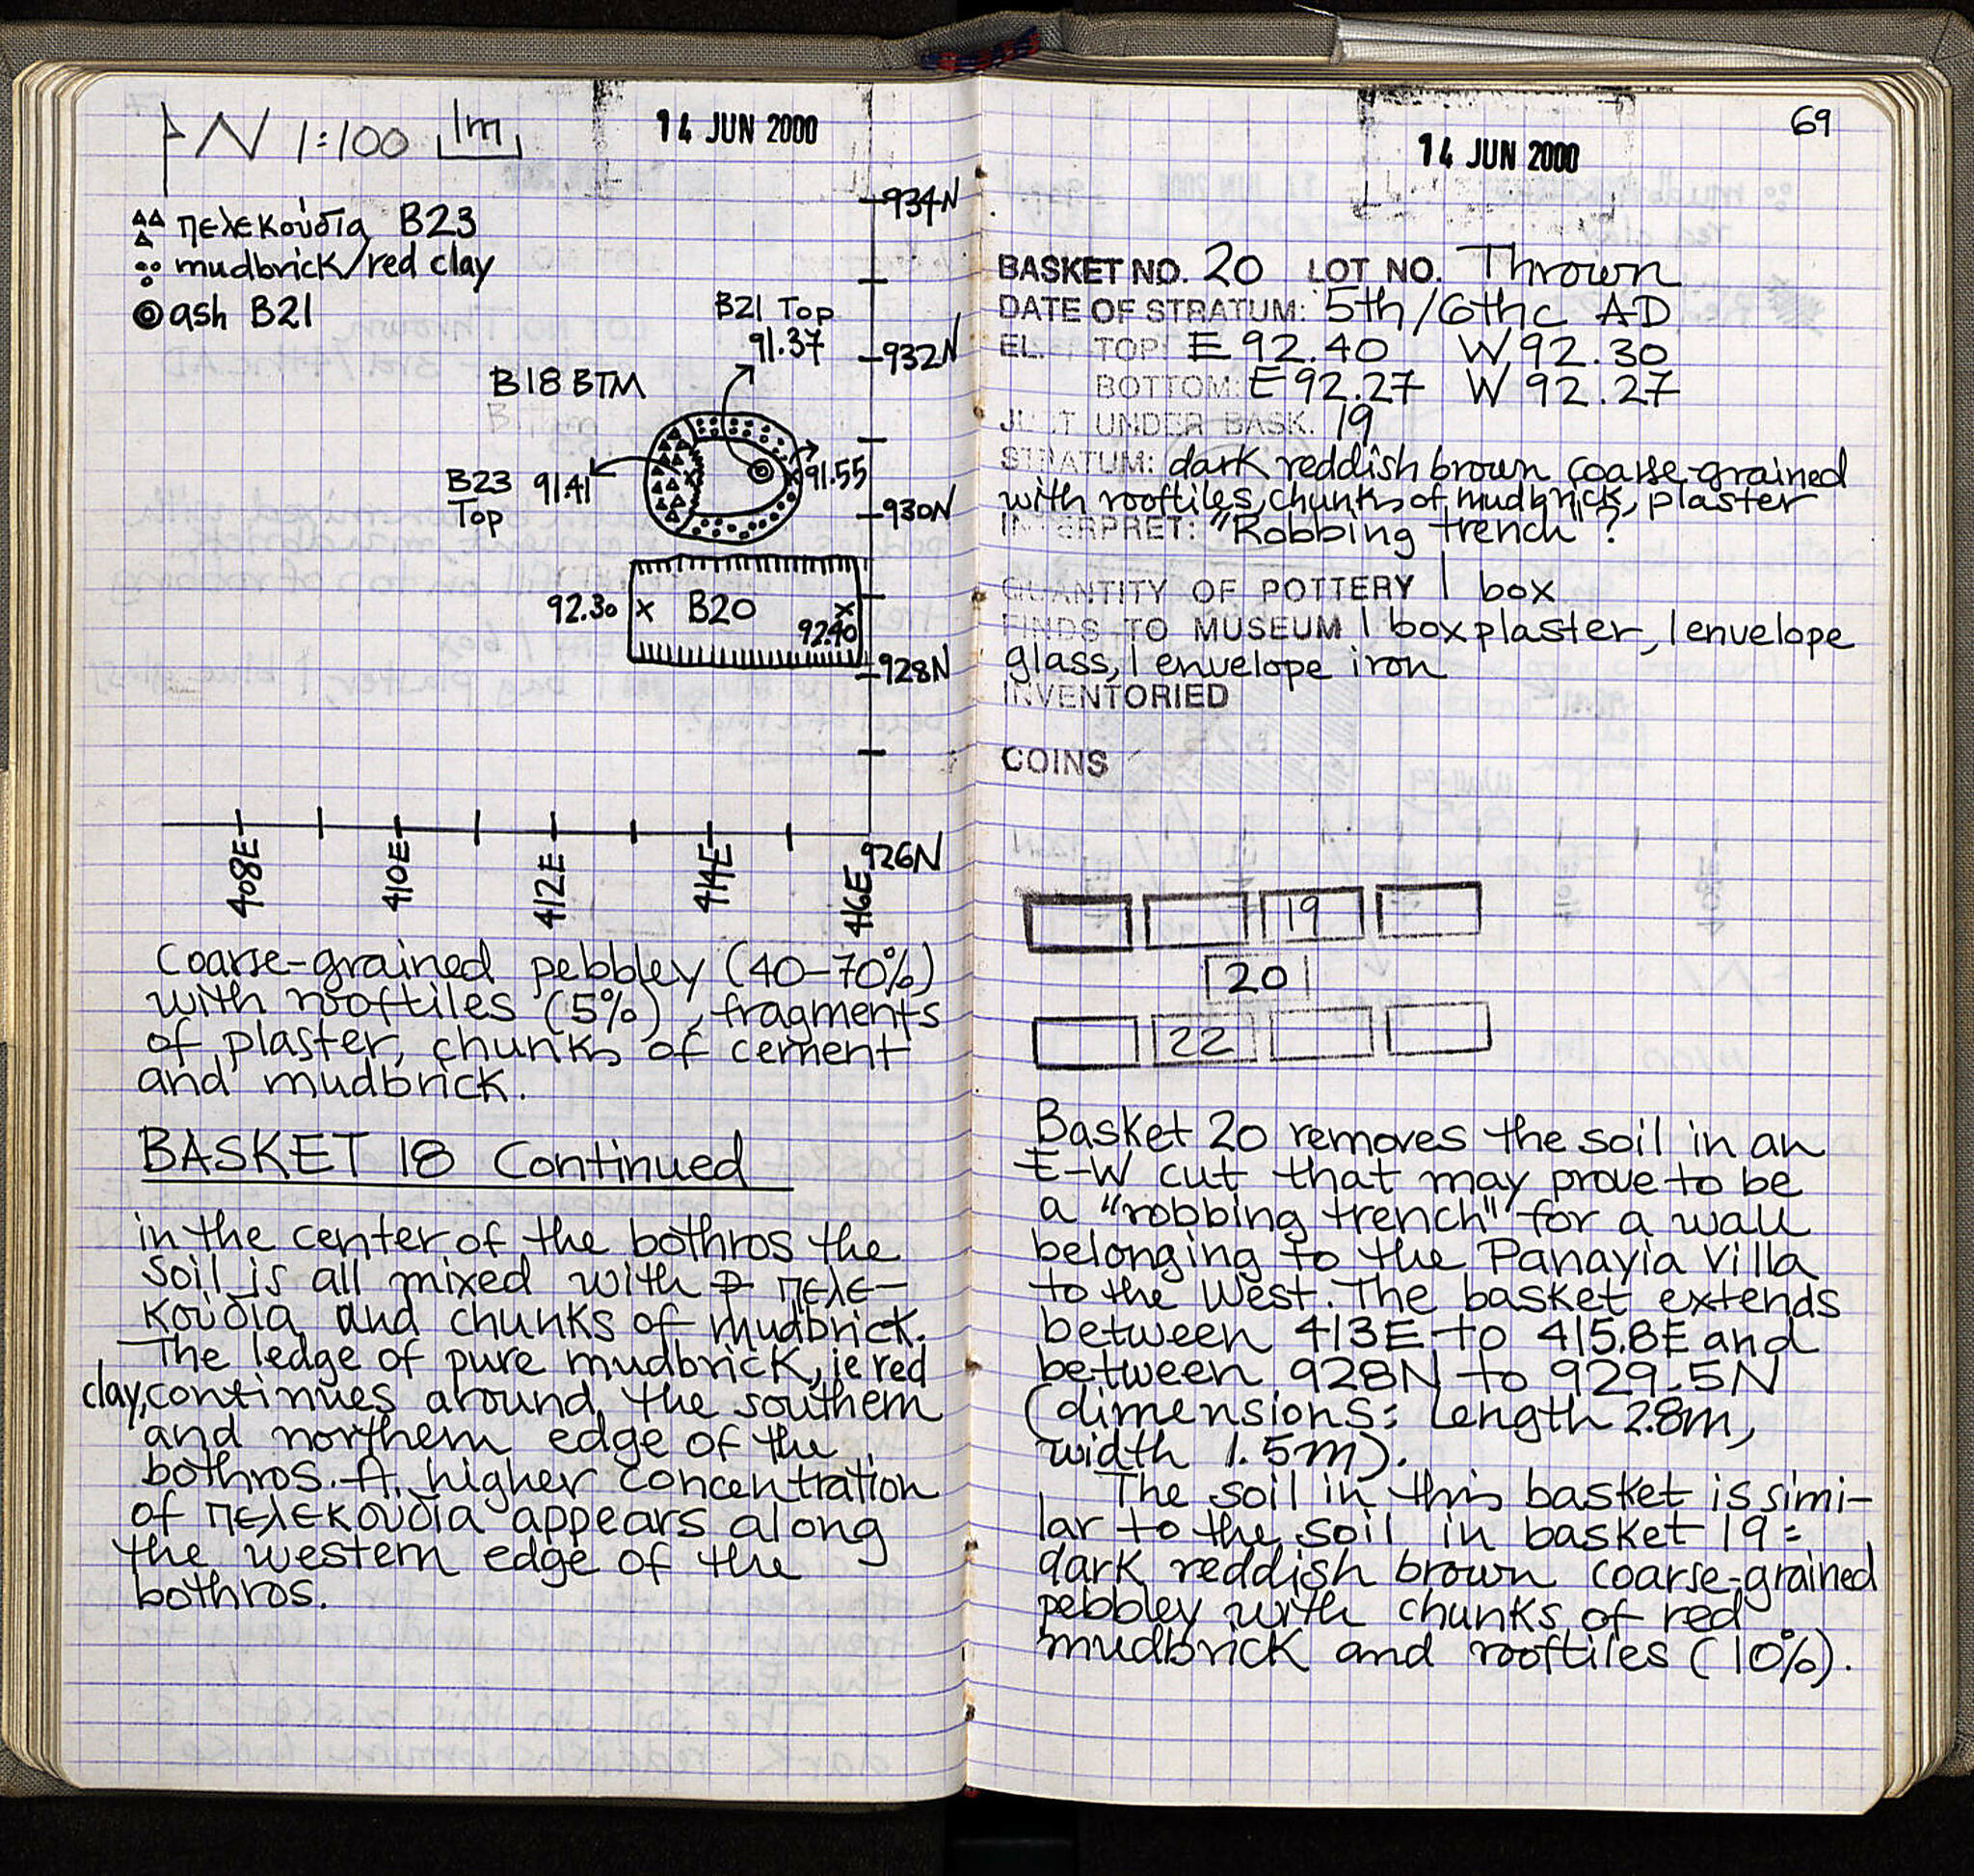 N 1:100 1m
14 JUN 2000
934N
πελεκούδια B23
mudbrick/red clay
ash B21
B21 Top
91.37
932N
B18 BTM
B23 91.41
Top
91.55
930N
92.30 x B20 x
92.40
928N
926N
408E 410E 412E 414E 416E
Coarse-grained pebbley (40-70%)
with rooftiles (5%), fragments
of plaster, chunks of cement
and mudbrick.
BASKET 18 Continued
in the center of the bothros the
soil is all mixed with πελε-
κούδια and chunks of mudbrick.
The ledge of pure mudbrick, ie red
clay, continues around the southern
and northern edge of the
bothros. A higher concentration
of πελεκούδια appears along
the western edge of the
bothros.
69
14 JUN 2000
BASKET NO. 20 LOT NO. Thrown
DATE OF STRATUM: 5th/6thc AD
EL. TOP: E 92.40 W 92.30
BOTTOM: E 92.27 W 92.27
JUST UNDER BASK. 19
STRATUM: dark reddish brown coarse-grained
with rooftiles, chunks of mudbrick, plaster
INTERPRET: "Robbing trench"?
QUANTITY OF POTTERY 1 box
FINDS TO MUSEUM 1 box plaster, 1 envelope
glass, 1 envelope iron
INVENTORIED
COINS
19
20
22
Basket 20 removes the soil in an
E-W cut that may prove to be
a "robbing trench" for a wall
belonging to the Panayia Villa
to the West. The basket extends
between 413E to 415.8E and
between 928N to 929.5N
(dimensions: Length 2.8m,
width 1.5m).
The soil in this basket is simi-
lar to the soil in basket 19:
dark reddish brown coarse-grained
pebbley with chunks of red
mudbrick and rooftiles (10%).